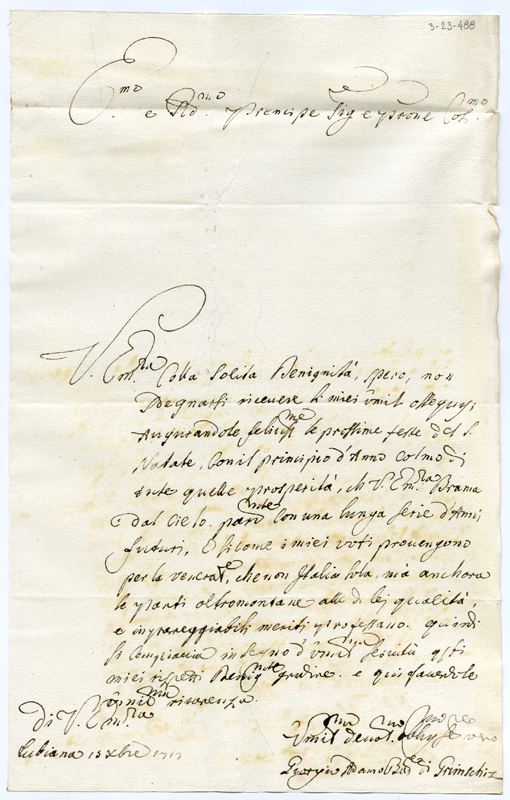 3-23-488
E.mo e Rd.mo Prencipe Sig e Prone Col.mo
V. Em.za Colla Solita Benignità, spero, non
Sdegnarà riceuere li miei ümil ossequij
Augurandole feliciss.me le prossime feste del S.
Natale, Con il principio d'Anno colmo di
tute quelle prosperità, ch V. Em.za Brama
dal Cielo, Con una lunga serie d'Anni
futuri, E si come i miei voti prouengono
per la venerat.e, che non Italia sola, mà anchora
le parti oltromontane alle di lej qualità,
e inpareggiabili meriti professano. quindi
si Compiaccia in segno d'üm.a seruitù q.sti
miei rispetti Benig.nte gradire. e qui facendole
ümil.ma riuerenza.
Di V. Em.za
Lubiana 15 xbre 1717
Ümil.mo deuot.mo obbl.mo se uero
Georgio Adamo Bar. di Grimschiz